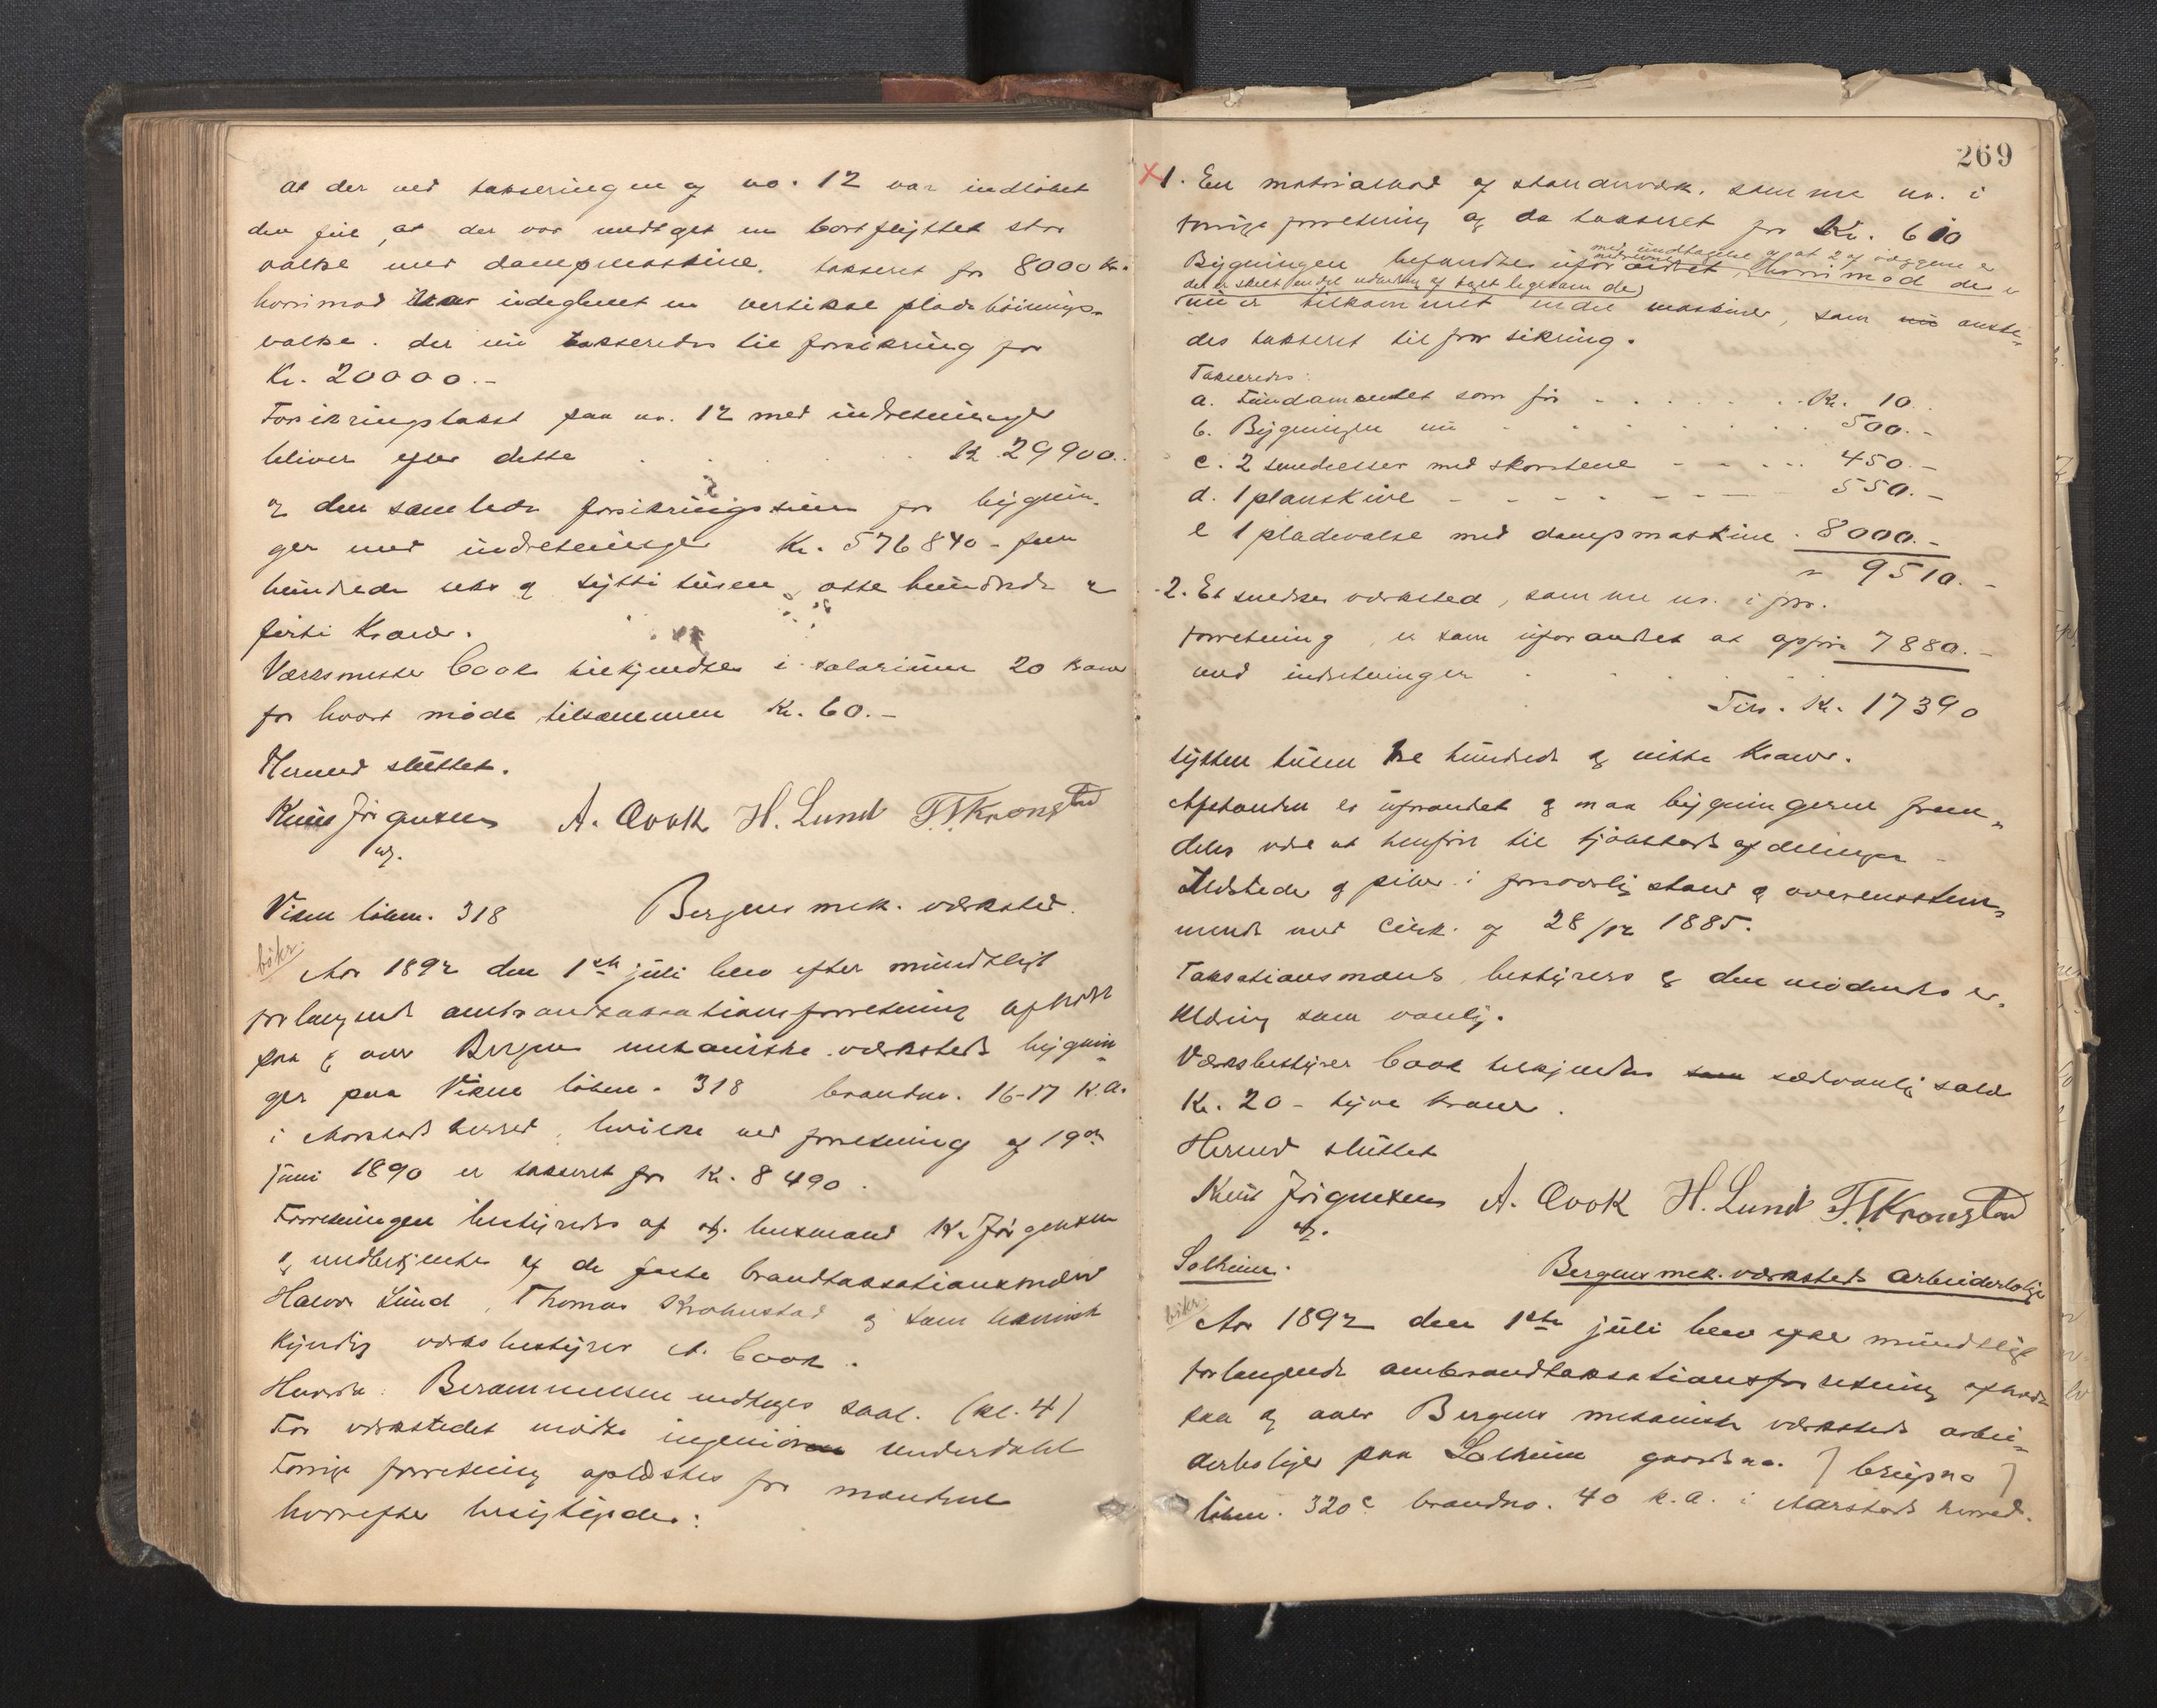 at der ved takseringen af no. 12 var indløbet
den feil, at der var medtaget en bortflyttet stor
valse med dampmaskine, takseret for 8000 kr.
hvorimod var udeglemt en vertikal pladebøinings-
valse. der nu takseredes til forsikring for
Kr. 20000.-
Forsikringstakst paa no. 12 med indretninger
bliver efter dette . . . . . K 29900.
og den samlede forsikringssum for bygnin-
ger med indretninger Kr. 576840 - fem
hundrede seks og sytti tusen otte hundrede og
førti Kroner.
Værksmester Cook tilkjendtes i salarium 20 kroner
for hvert møde tilsammen Kr. 60.-
Hermed sluttet.
Knud Jørgensen A. Cook H. Lund T. T. Kronstad
Viken løbnr. 318 Bergens mek. værksted.
Aar 1892 den 1ste juli blev efter mundtligt
forlangende ombrandtaksationsforretning afholdt
paa og over Bergens mekaniske værksteds bygnin-
ger paa Viken løbnr. 318 brandno. 16-17 K.a.
i Aarstads herred, hvilke ved forretning af 19de
juni 1890 er takseret for Kr. 8490.
Forretningen bestyredes af lensmand K. Jørgensen
og medbetjentes af de faste brandtaksationsmænd
Halvor Lund, Thomas Krohnstad og som teknisk
kyndig værksbestyrer A. Cook.
Hvorda: Berammelsen vedtoges saal. (kl. 4)
For værkstedet mødte ingeniør Underdahl
Forrige forretning oplæstes for mændene
hvorefter besigtigedes:
269
1. En materialbod af standerværk. samme no. i
forrige forretning og da takseret for Kr. 610
med undtagelse af at 2 af væggene er
Bygningen befandtes uforandret, hvorimod der
nu er tilkommet endel maskiner, som nu anste-
des takseret til forsikring.
Takseredes:
a. Fundamentet som før . . . . Kr. 10.
b. Bygningen nu . . . . 500.-
c. 2 smedeesser med skorstene - - . . 450.-
d. 1 planskive - - - - - 550.-
e 1 pladevalse med dampmaskine . 8000.-
" 9510.-
2. Et snedker værksted, samme no. i for.
forretning, er som uforandret at opføre 7880.-
med indretninger . . . .
Tils. Kr. 17390
sytten tusen tre hundrede og nitti Kroner.
Afstanden er uforandret og maa bygningerne frem-
deles være at henføre til sjøkottets afdelingen -
Ildsteder og piber i forsvarlig stand og overensstem-
mende med Cirk. af 28/12 1885.
Taksationsmænds, bestyrers og den mødendes er-
klæring som vanlig.
Værksbestyrer Cook tilkjendes som sædvanlig salær
Kr. 20 - tyve kroner.
Hermed sluttet
Knud Jørgensen A. Cook H. Lund T. T. Kronstad
Solheim. Bergens mek. værksteds arbeiderbolige
Aar 1892 den 1ste juli blev efter mundtligt
forlangende ombrandtaksationsforretning afholdt
paa og over Bergens mekaniske værksteds arbei-
derboliger paa Solheim gaardsno. ) brugsno )
løbnr. 320c brandno. 40 k.a. i Aarstads herred.